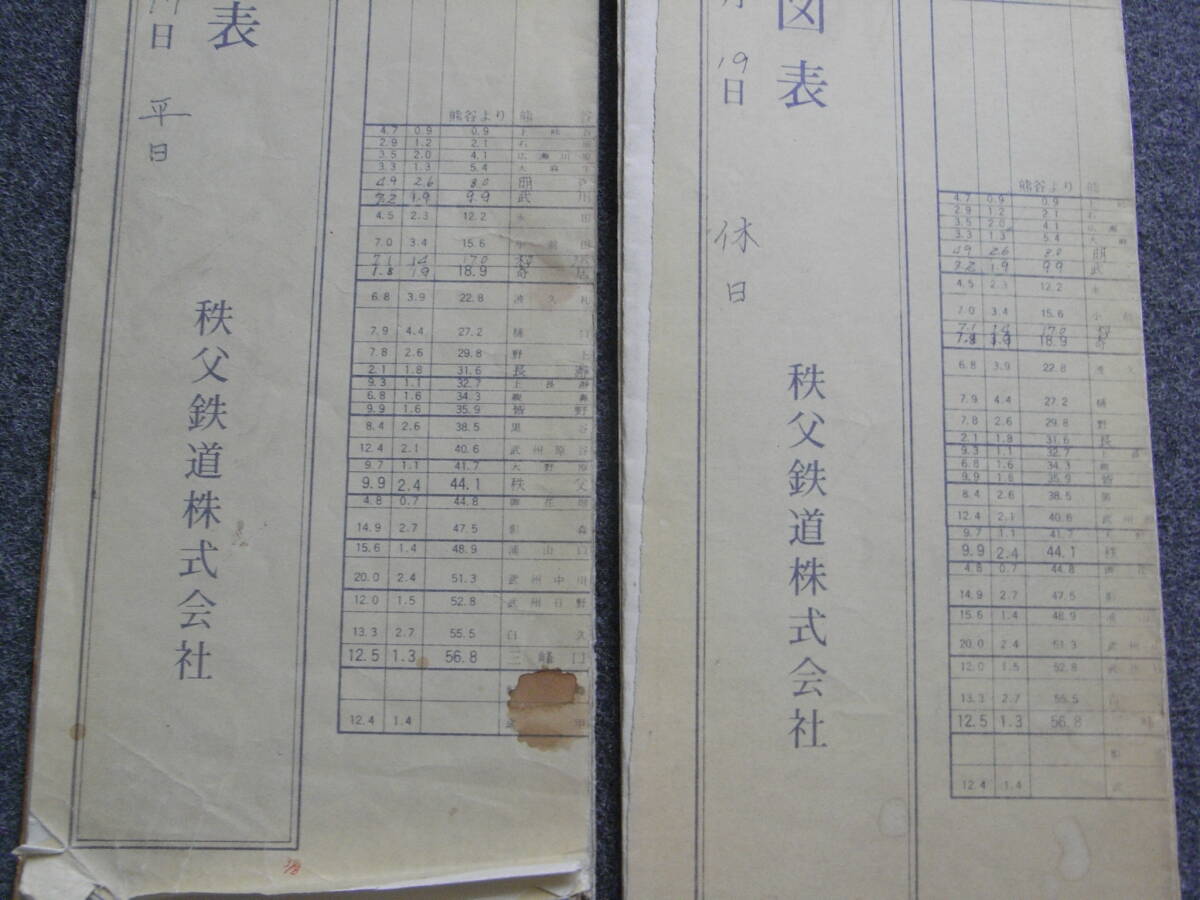 表
日
平
日
秩父鉄道株式会社
熊谷より 熊谷
4.7 0.9 0.9 上熊谷
2.9 1.2 2.1 石
3.5 2.0 4.1 広瀬川原
3.3 1.3 5.4 大麻
4.9 2.6 8.0 明戸
2.2 1.9 9.9 武川
4.5 2.3 12.2 永田
7.0 3.4 15.6 小前田
7.1 1.4 17.0 桜沢
7.8 1.9 18.9 寄居
6.8 3.9 22.8 波久礼
7.9 4.4 27.2 樋口
7.8 2.6 29.8 野上
2.1 1.8 31.6 長瀞
9.3 1.1 32.7 上長瀞
6.8 1.6 34.3 親鼻
9.9 1.6 35.9 皆野
8.4 2.6 38.5 黒谷
12.4 2.1 40.6 武州原谷
9.7 1.1 41.7 大野原
9.9 2.4 44.1 秩父
4.8 0.7 44.8 御花畑
14.9 2.7 47.5 影森
15.6 1.4 48.9 浦山口
20.0 2.4 51.3 武州中川
12.0 1.5 52.8 武州日野
13.3 2.7 55.5 白久
12.5 1.3 56.8 三峰口
12.4 1.4 武甲
図表
月
19日
休
日
秩父鉄道株式会社
熊谷より 熊
4.7 0.9 0.9 上
2.9 1.2 2.1 石
3.5 2.0 4.1 広瀬
3.3 1.3 5.4 大麻
4.9 2.6 8.0 明
2.2 1.9 9.9 武
4.5 2.3 12.2 永
7.0 3.4 15.6 小前
7.1 1.4 17.0 桜
7.8 1.9 18.9 寄
6.8 3.9 22.8 波久
7.9 4.4 27.2 樋
7.8 2.6 29.8 野
2.1 1.8 31.6 長
9.3 1.1 32.7 上長
6.8 1.6 34.3 親
9.9 1.6 35.9 皆
8.4 2.6 38.5 黒
12.4 2.1 40.6 武州
9.7 1.1 41.7 大野
9.9 2.4 44.1 秩
4.8 0.7 44.8 御花
14.9 2.7 47.5 影
15.6 1.4 48.9 浦山
20.0 2.4 51.3 武州
12.0 1.5 52.8 武州
13.3 2.7 55.5 白
12.5 1.3 56.8 三峰
影
12.4 1.4 武